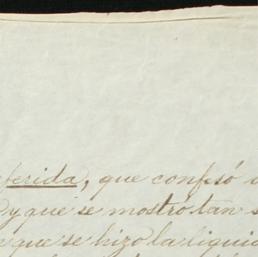 ferida, que confesó
y que se mostró tan
que se hizo la liquid